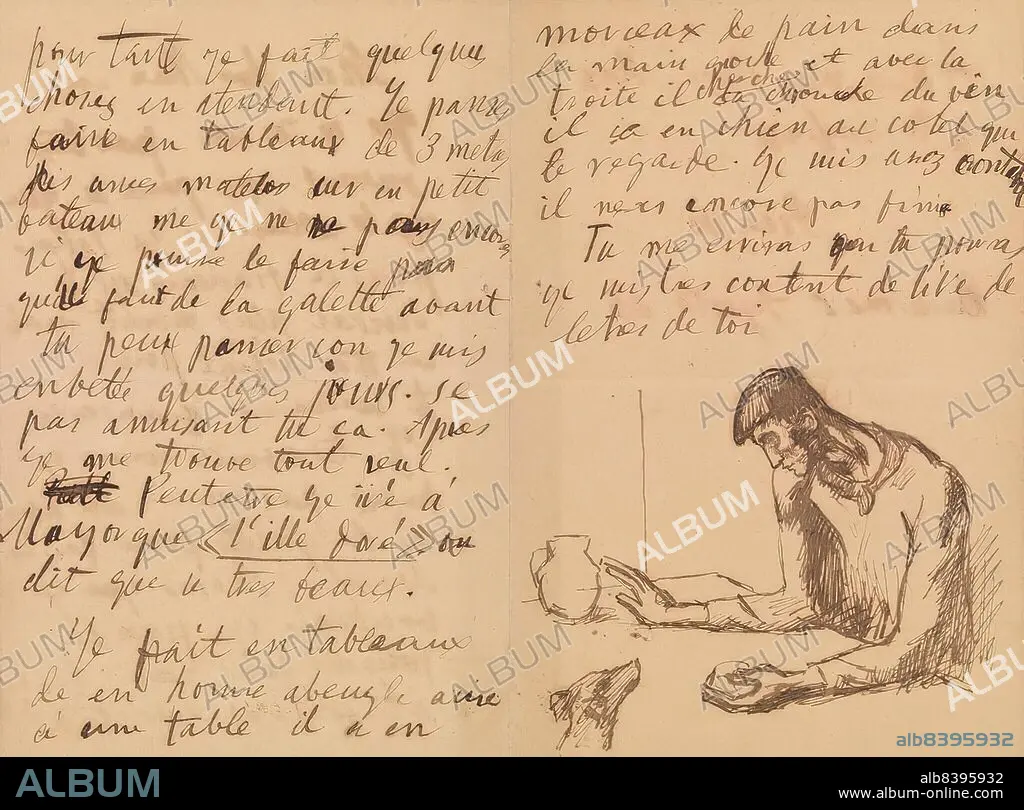 pour tant ye fait quelques
choses en atendent. Ye panse
faire en tableaux de 3 metres
des marins matelos sur en petit
bateau me ye ne pous encores
si ye pouise le faire
qu'ill faut de la galette avant
tu peux panser con ye mis
enbette quelques jours. se
pas amusant tu ca. Apres
ye me trouve tout seul.
Peutetre ye iré á
Mayorque <l'ille doré> on
dit que se tres beaux.
Ye fait en tableaux
de en homme abeugle asise
á une table il a en
morceaux de pain dans
la main goche et avec la
troite il cherche du vin
il ia en chien au cotel qui
le regarde. Ye mis asez contant
il ness encore pas finis
Tu me eriras quan tu pouras
ye mis tres content de live de
letres de toi
ALBUM
alb8395932
ALBUM
alb8395932
www.album-online.com